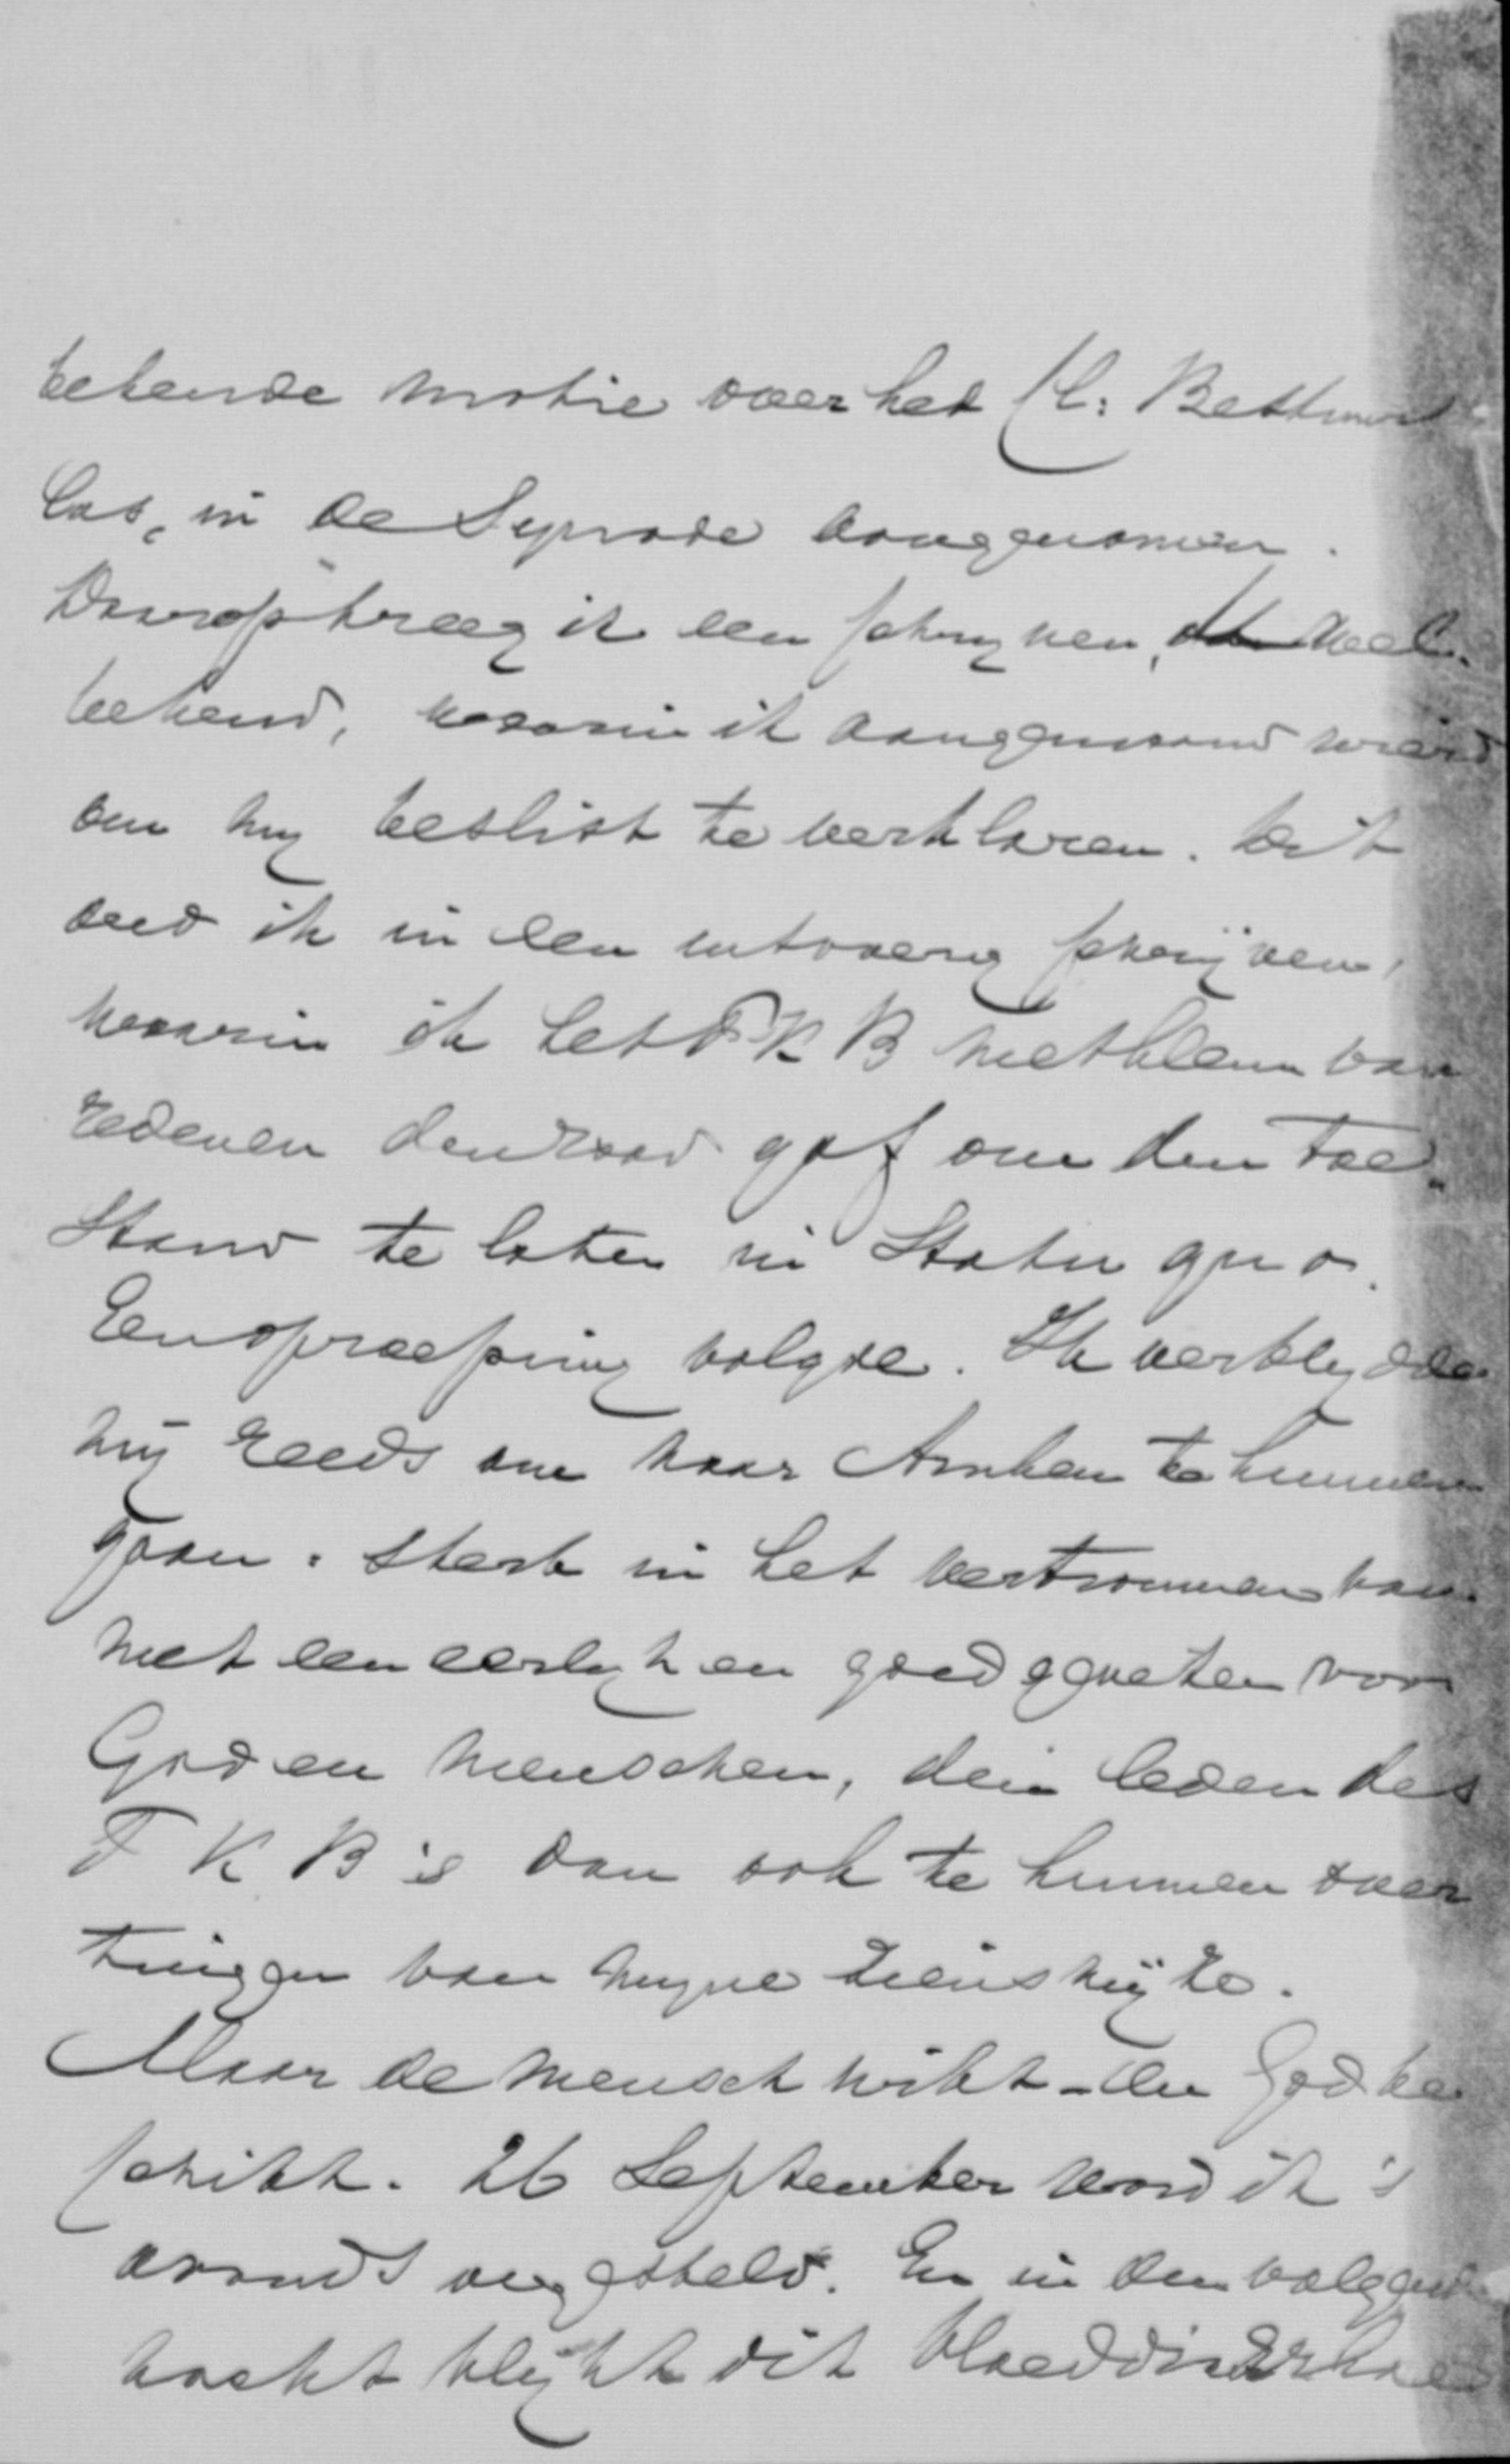 bekende motie over het Cl: Bestuur
las, in de Synode aangenomen.
Daarop kreeg ik een schrijven, wel
bekend, waarin ik aangemaand werd
om mij beslist te verklaren. Dit
deed ik in een uitvoerig schrijven,
waarin ik het P K B met klem van
redenen den raad gaf om den toe-
stand te laten in Statu quo.
Een oproeping volgde. Ik verblijdde
mij reeds om naar Arnhem te kunnen
gaan. Sterk in het vertrouwen van
met een eerlijk en goed geweten voor
God en menschen, den leden des
P K B's dan ook te kunnen over
tuigen van mijne zienswijze.
Maar de mensch wikt - en God be
schikt. 26 September word ik 's
avonds ongesteld. En in den volgende
nacht blijkt dit bloeddiarrhee